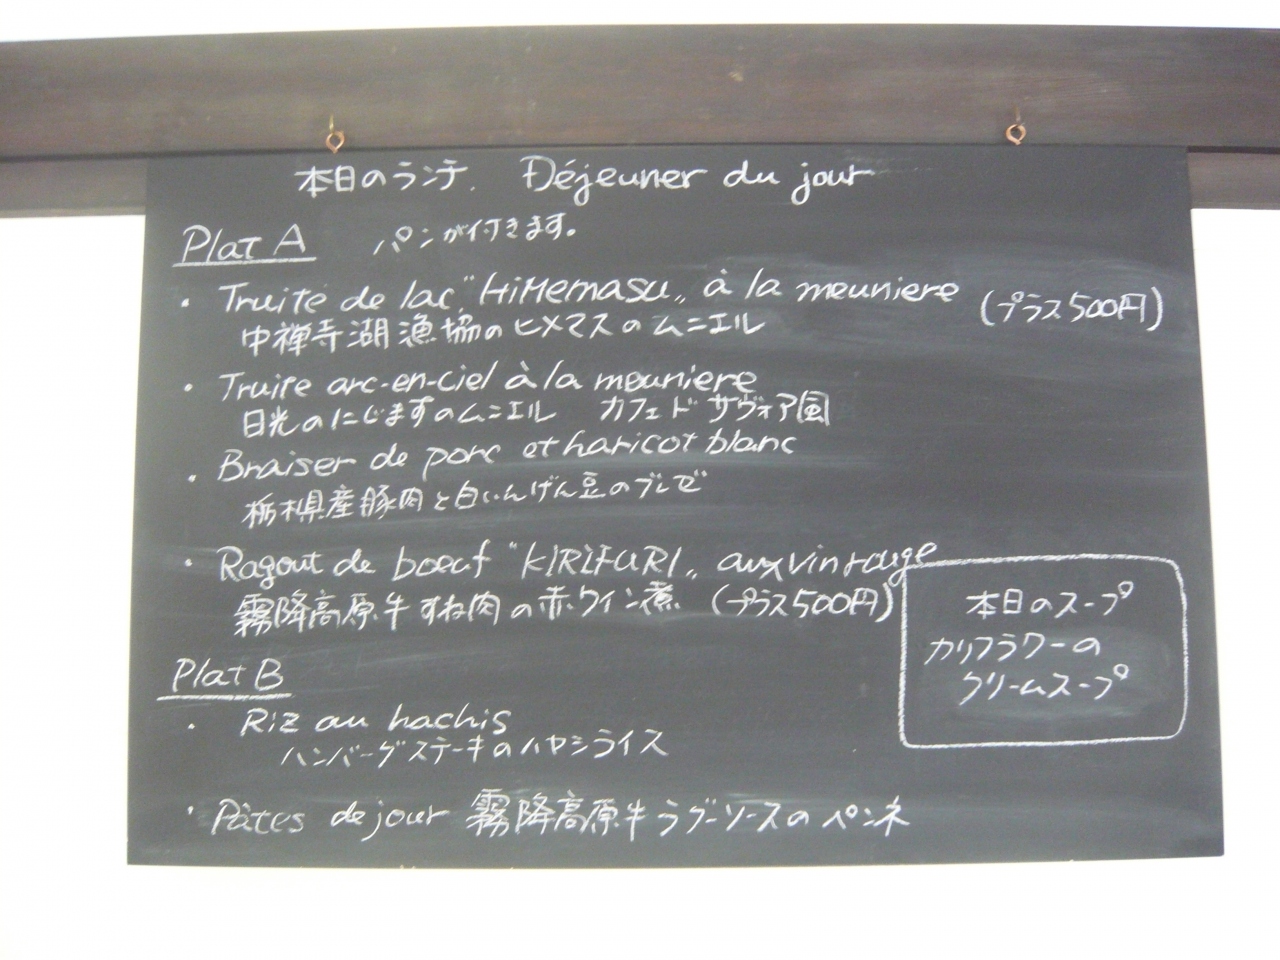 本日のランチ. Déjeuner du jour
Plat A パンが付きます。
・Truite de lac "HiMemasu„ à la meuniere (プラス500円)
中禅寺湖漁協のヒメマスのムニエル
・Truite arc-en-ciel à la meuniere
日光のにじますのムニエル カフェドサヴォア風
・Braiser de porc et haricot blanc
栃木県産豚肉と白いんげん豆のブレゼ
・Ragout de boeuf "KIRIFURI„ aux vin rouge
霧降高原牛すね肉の赤ワイン煮 (プラス500円)
Plat B
・Riz au hachis
ハンバーグステーキのハヤシライス
・Pâtes de jour 霧降高原牛ラグーソースのペンネ
本日のスープ
カリフラワーの
クリームスープ